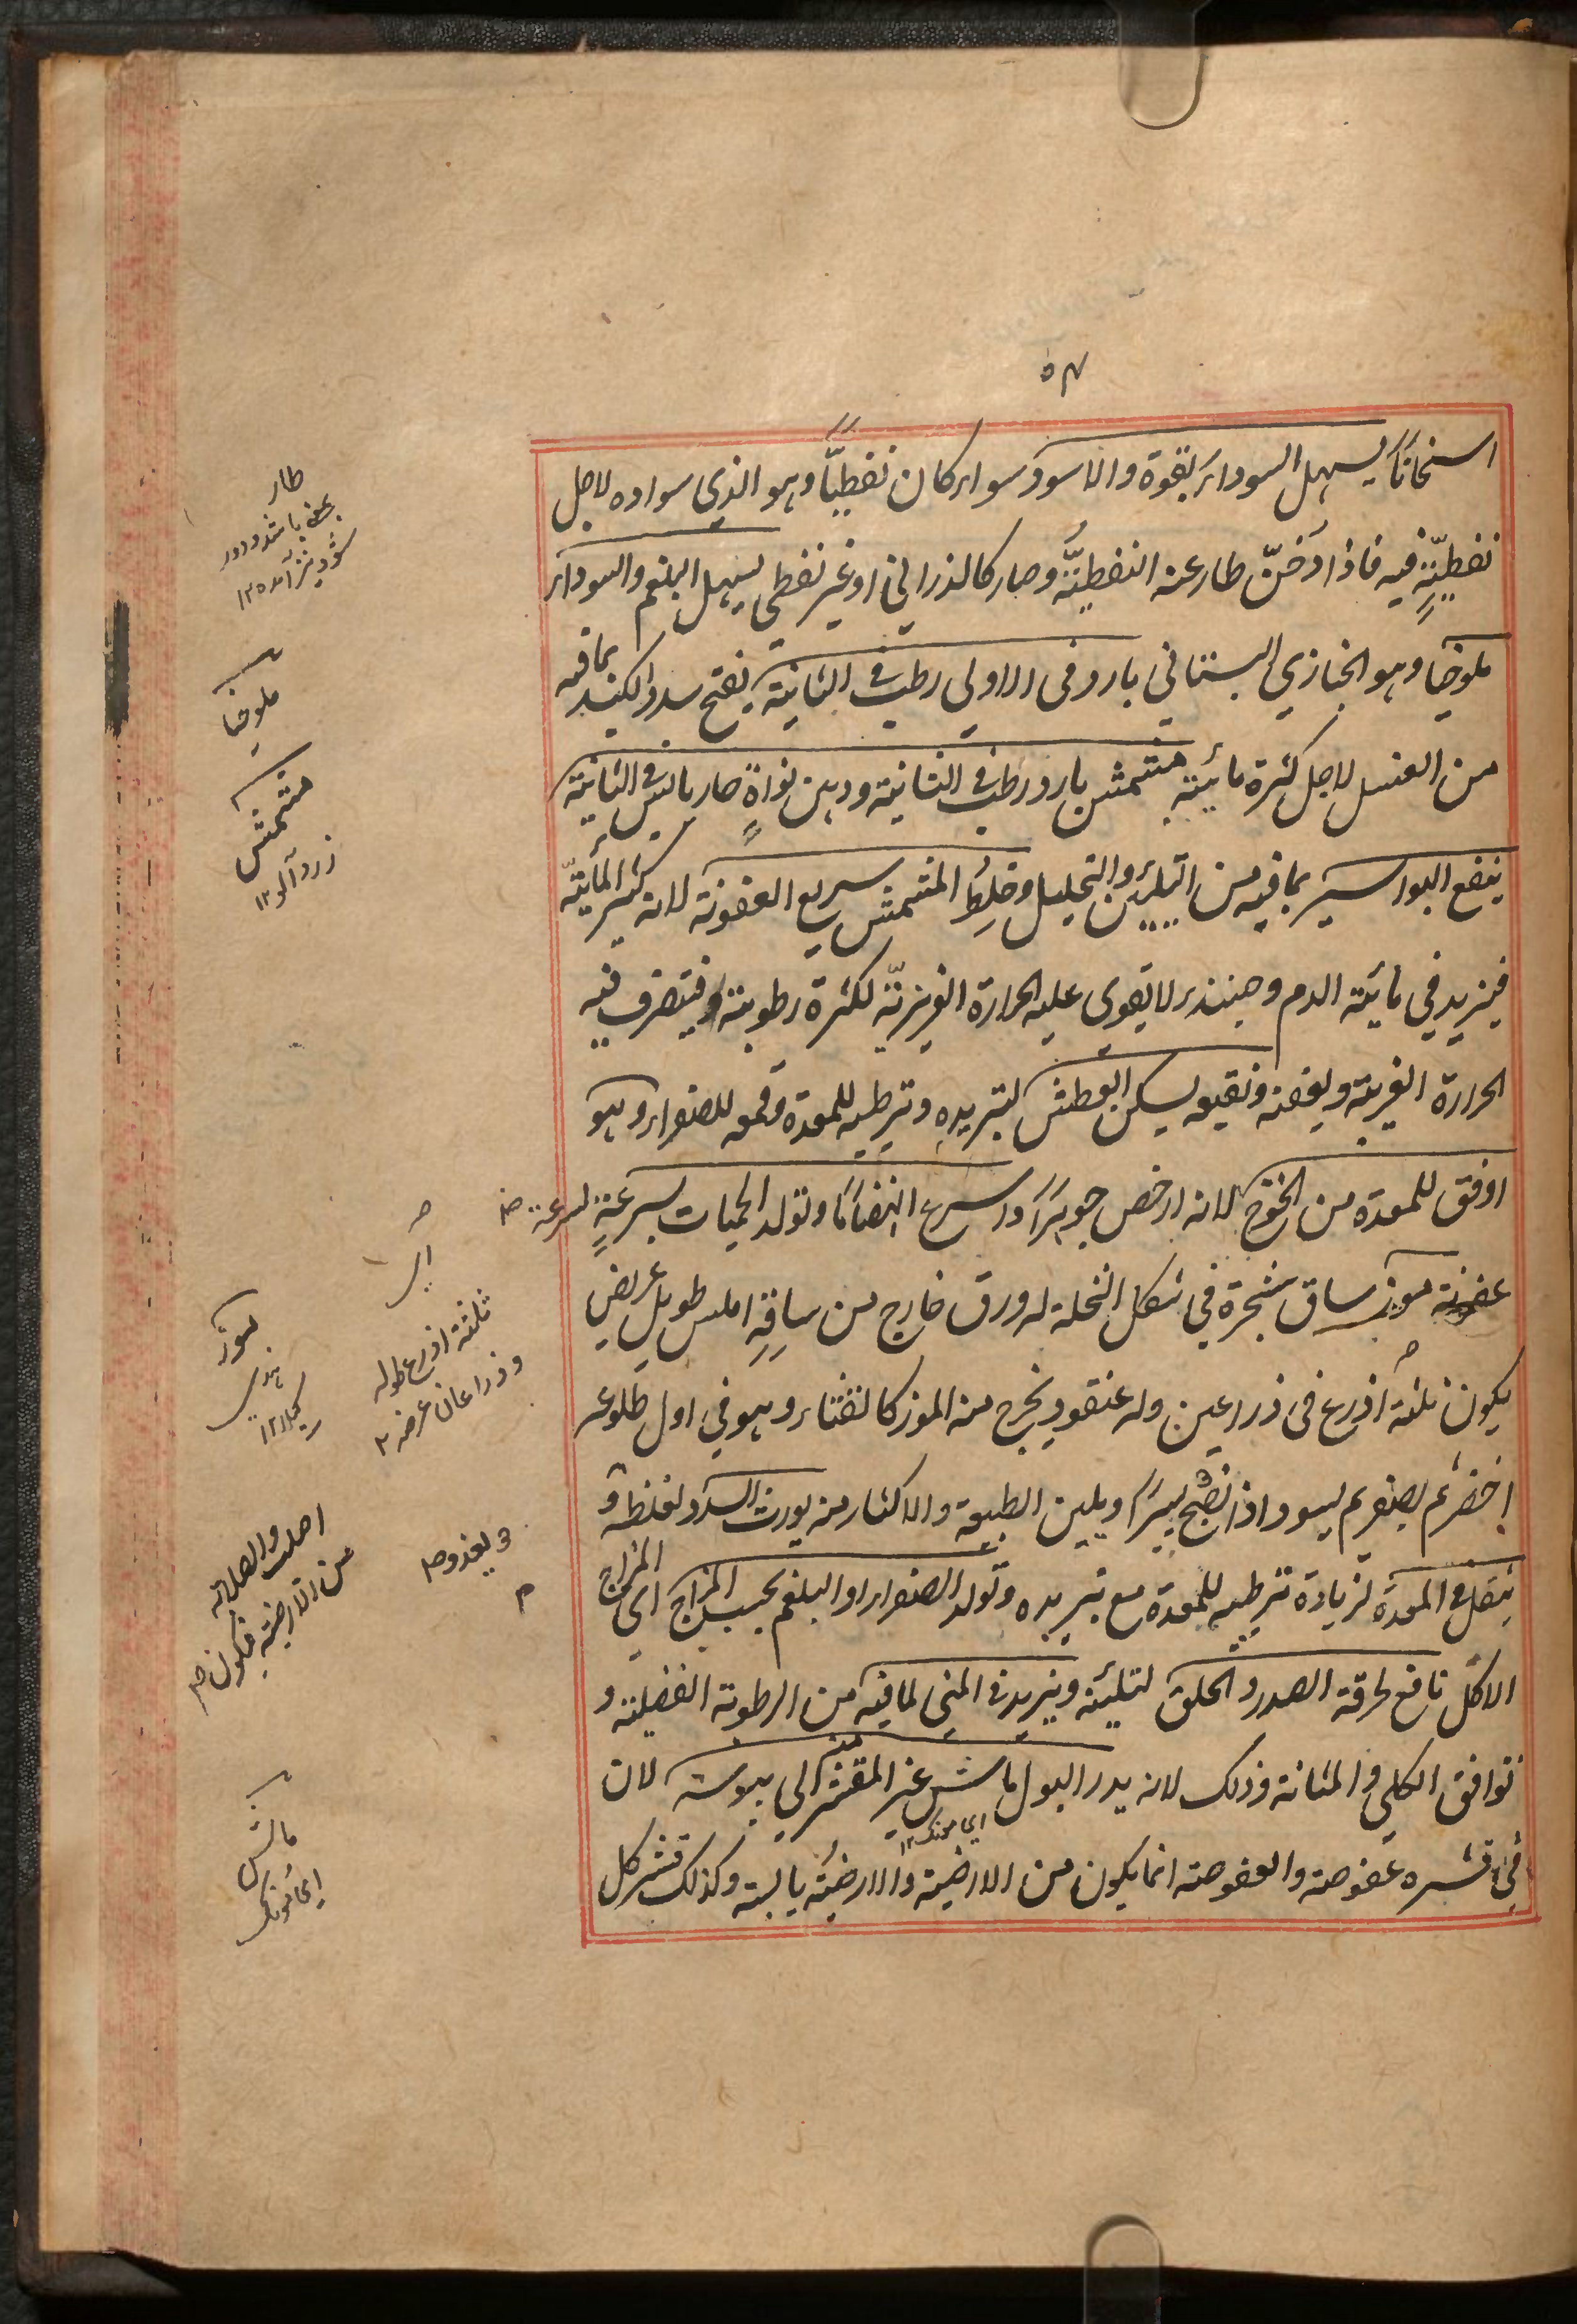 ۵۴
اسخانا يسهل السوداء بقوة والاسود سواء كان نفطيًّا وهو الذي سواده لاجل
نفطيّةٍ فيه فاذا دُخّن طار عنه النفطيّة وصار كالذراني او غير نفطي يسهل البلغم والسوداء
ملوخيا وهو الخبازي البستاني بارد في الاولى رطب في الثانية يفتح سدد الكبد بما فيه
من الغسل لاجل كثرة مائيته مشمش بارد رطب في الثانية ودهن نواة حار يابس في الثانية
ينفع البواسير بما فيه من التليين والتحليل وخلط المشمش سريع العفونة لانه كثير المائيّة
فيزيد في مائية الدم وحينئذ لا يقوى عليه الحرارة الغريزيّة لكثرة رطوبته فيتصرف فيه
الحرارة الغريبة ويعفنه ونقيعه يسكن العطش لتبريده وترطيبه للمعدة وقمعه للصفراء وهو
اوفق للمعدة من الخوخ لانه ارخص جوهرًا واسرع انهضامًا وتولد الحميات بسرعةٍ لسرعة
عفونته موز ساق شجرة في شكل النخلة له ورق خارج من ساقِهِ املس طويل عريض
يكون ثلثة اذرع في ذراعين وله عنقود يخرج منه الموز كالقثاء وهو في اول طلوعه
اخضر ثم يصفر ثم يسود اذا نضج يسيرًا ويلين الطبيعة والاكثار منه يورث السدد لغلظه و
يثقل في المعدة لزيادة ترطيبه للمعدة مع تبريده وتولد الصفراء او البلغم بحسب المزاج اي المزاج
الاكل نافع لحرقة الصدر والحلق لتليينه ويزيد في المني لما فيه من الرطوبة الفضلية و
توافق الكلى والمثانة وذلك لانه يدر البول ماش غير المقشر الى يبوسة لان
في قشره عفوصة والعفوصة انما يكون من الارضية والارضية يابسة وكذلك قشر كل
اي مونك ۱۲
طار
شود نيز آمده ۱۲
ملوخيا
مشمش
زرد آلو ۱۲
ثلثة اذرع طوله
وذراعان عرضه
موز
هندي
كيلا ۱۲
من الارضية فيكون
ماش
اي مونك